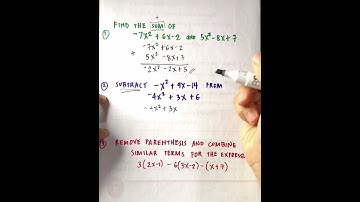 +
① FIND THE SUM OF
-7x² + 6x - 2 AND 5x² - 8x + 7
-7x² + 6x - 2
+ 5x² - 8x + 7
-2x² - 2x + 5 //
② SUBTRACT -x² + 9x - 14 FROM
-4x² + 3x + 6
-4x² + 3x
③ REMOVE PARENTHESIS AND COMBINE
SIMILAR TERMS FOR THE EXPRESS
3(2x-1) - 6(3x-2) - (x+7)